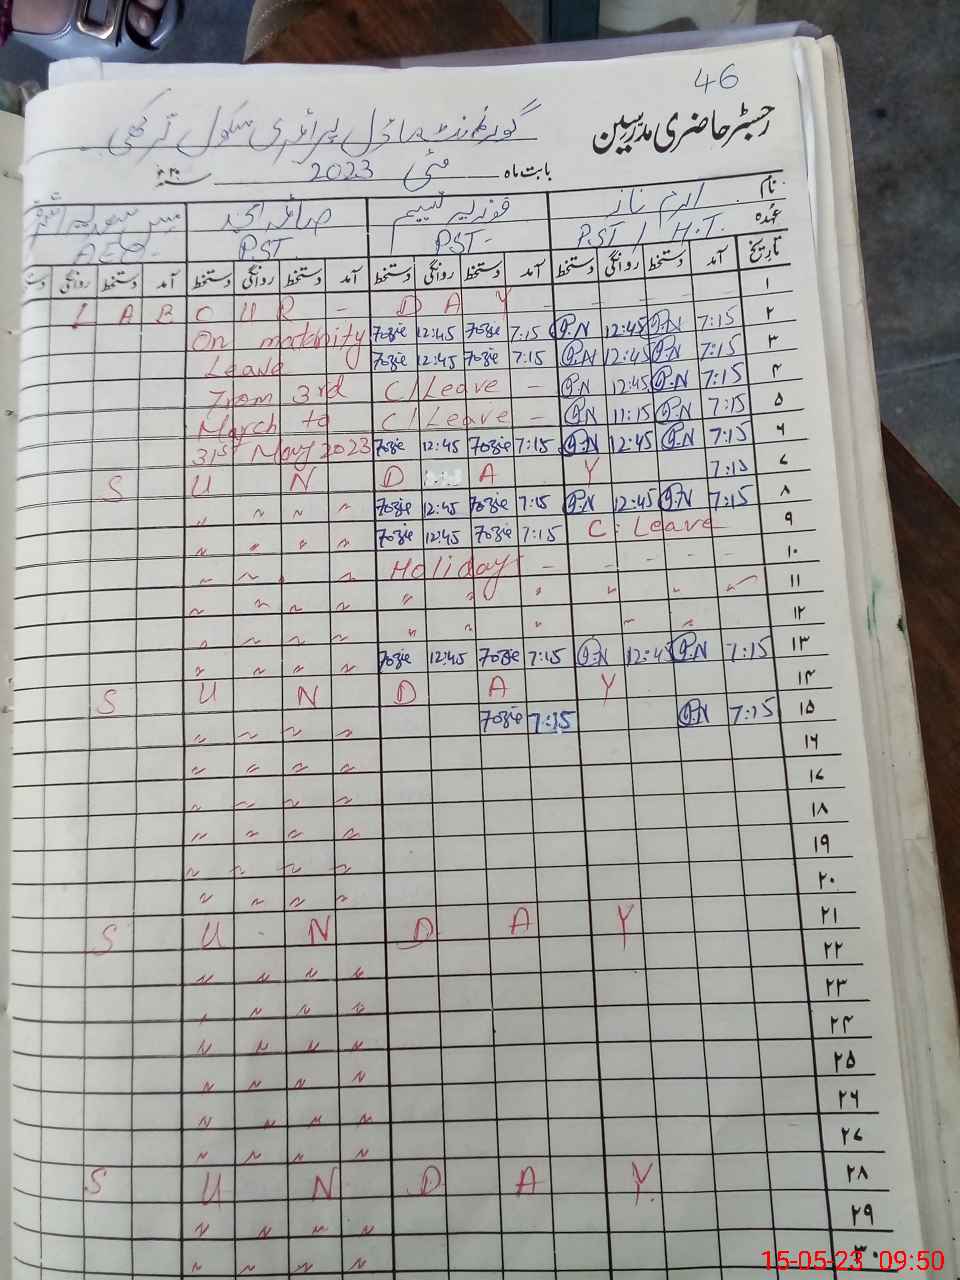 46
رجسٹر حاضری مدرسین
گورنمنٹ ماڈل پرائمری سکول
بابت ماہ مئی 2023
نام ارم ناز فوزیہ تسنیم صائمہ
عہدہ P.ST / H.T. PST- PST. AEO-
تاریخ آمد دستخط روانگی دستخط آمد دستخط روانگی دستخط آمد دستخط روانگی دستخط آمد دستخط روانگی
۱ L A B O U R - D A Y - - - -
۲ 7:15 12:45 7:15 Fozie 12:45 Fozie On matarnity
۳ 7:15 12:45 7:15 Fozie 12:45 Fozie Leave
۴ 7:15 12:45 - C/Leave From 3rd
۵ 7:15 11:15 - C/Leave March to
۶ 7:15 12:45 7:15 Fozie 12:45 Fozie 31st May 2023
۷ 7:15 S U N D A Y
۸ 7:15 12:45 7:15 Fozie 12:45 Fozie " " " "
۹ C. Leave 7:15 Fozie 12:45 Fozie " " " "
۱۰ Holiday - - - - " " "
۱۱ " " " " " " " " "
۱۲ " " " " " " " " "
۱۳ 7:15 12:45 7:15 Fozie 12:45 Fozie " " " "
۱۴ S U N D A Y
۱۵ 7:15 7:15 Fozie " " " "
۱۶ " " " "
۱۷ " " " "
۱۸ " " " "
۱۹ " " " "
۲۰ " " " "
۲۱ S U N D A Y
۲۲ " " " "
۲۳ " " " "
۲۴ " " " "
۲۵ " " " "
۲۶ " " " "
۲۷ " " " "
۲۸ S U N D A Y
۲۹ " " " "
۳۰ " " " "
15-05-23 09:50